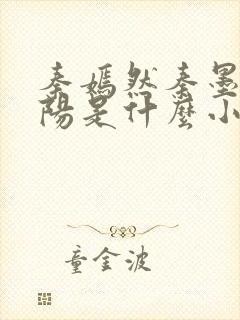 秦嫣然秦墨
陽是什麼小
童金波